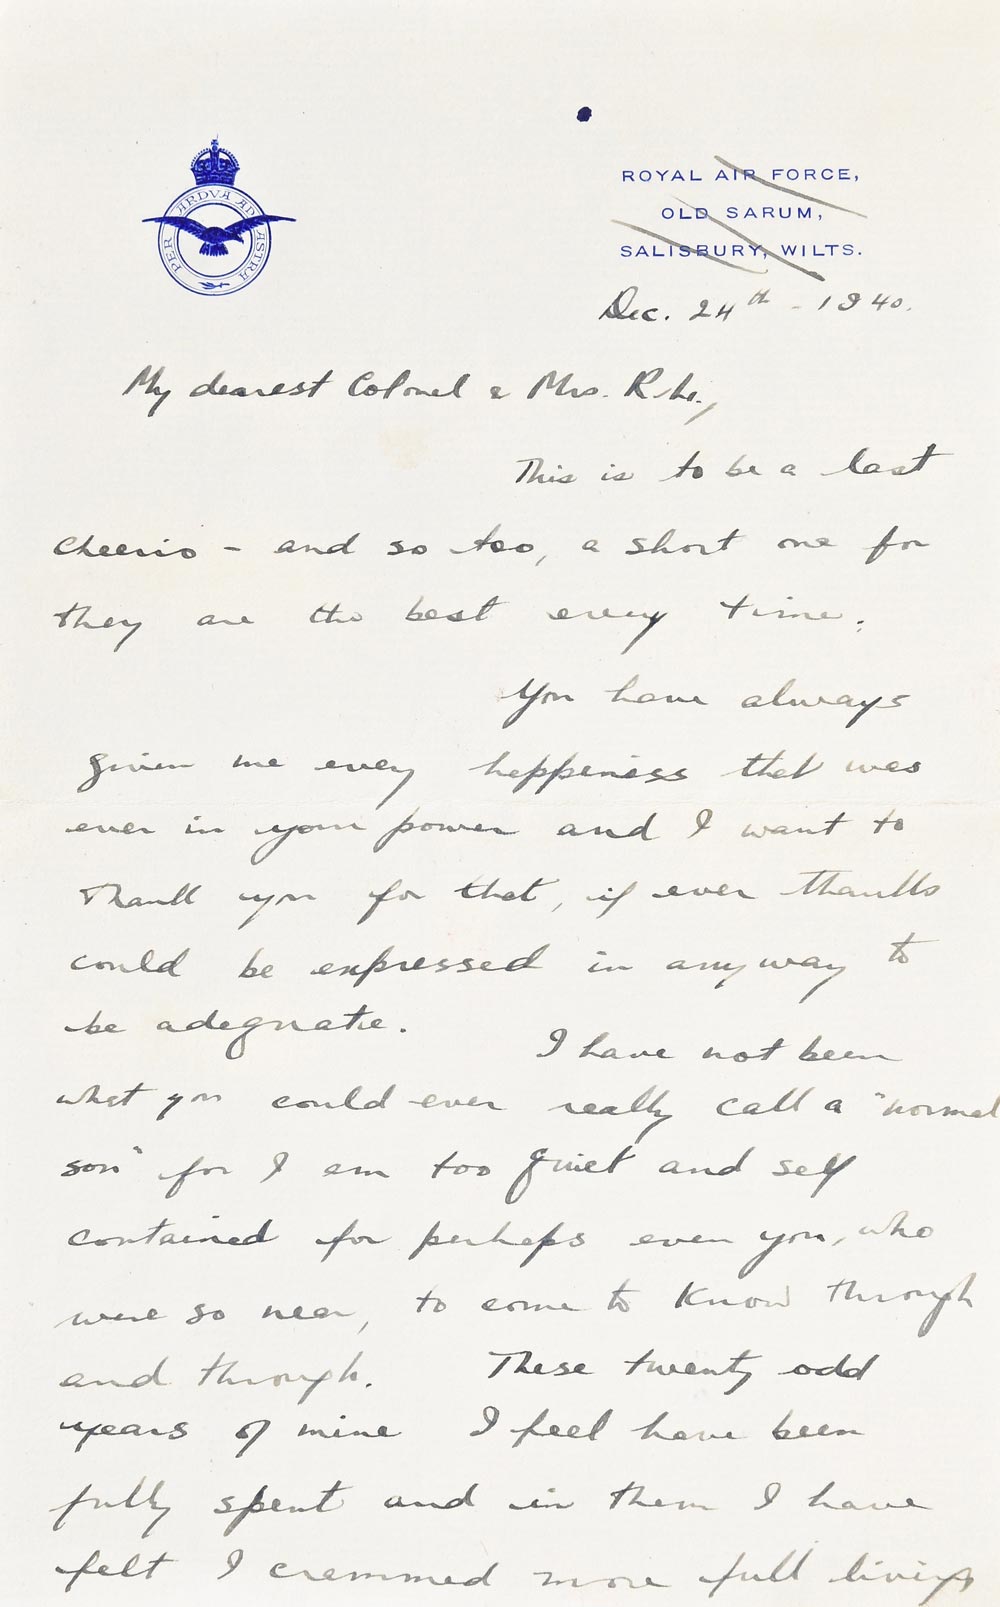 PER ARDVA AD ASTRA
ROYAL AIR FORCE,
OLD SARUM,
SALISBURY, WILTS.
Dec. 24th - 1940.
My dearest Colonel & Mrs.
This is to be a last
cheerio - and so too, a short one for
they are the best every time.
You have always
given me every happeniess that was
ever in your power and I want to
thank you for that, if ever thanks
could be expressed in anyway to
be adequate.
I have not been
what you could ever really call a "normal
son" for I am too quiet and self
contained for perhaps even you, who
were so near, to come to know through
and through. These twenty odd
years of mine I feel have been
fully spent and in them I have
felt I crammed more full living